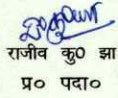 राजीव कु० झा
प्र० पदा०